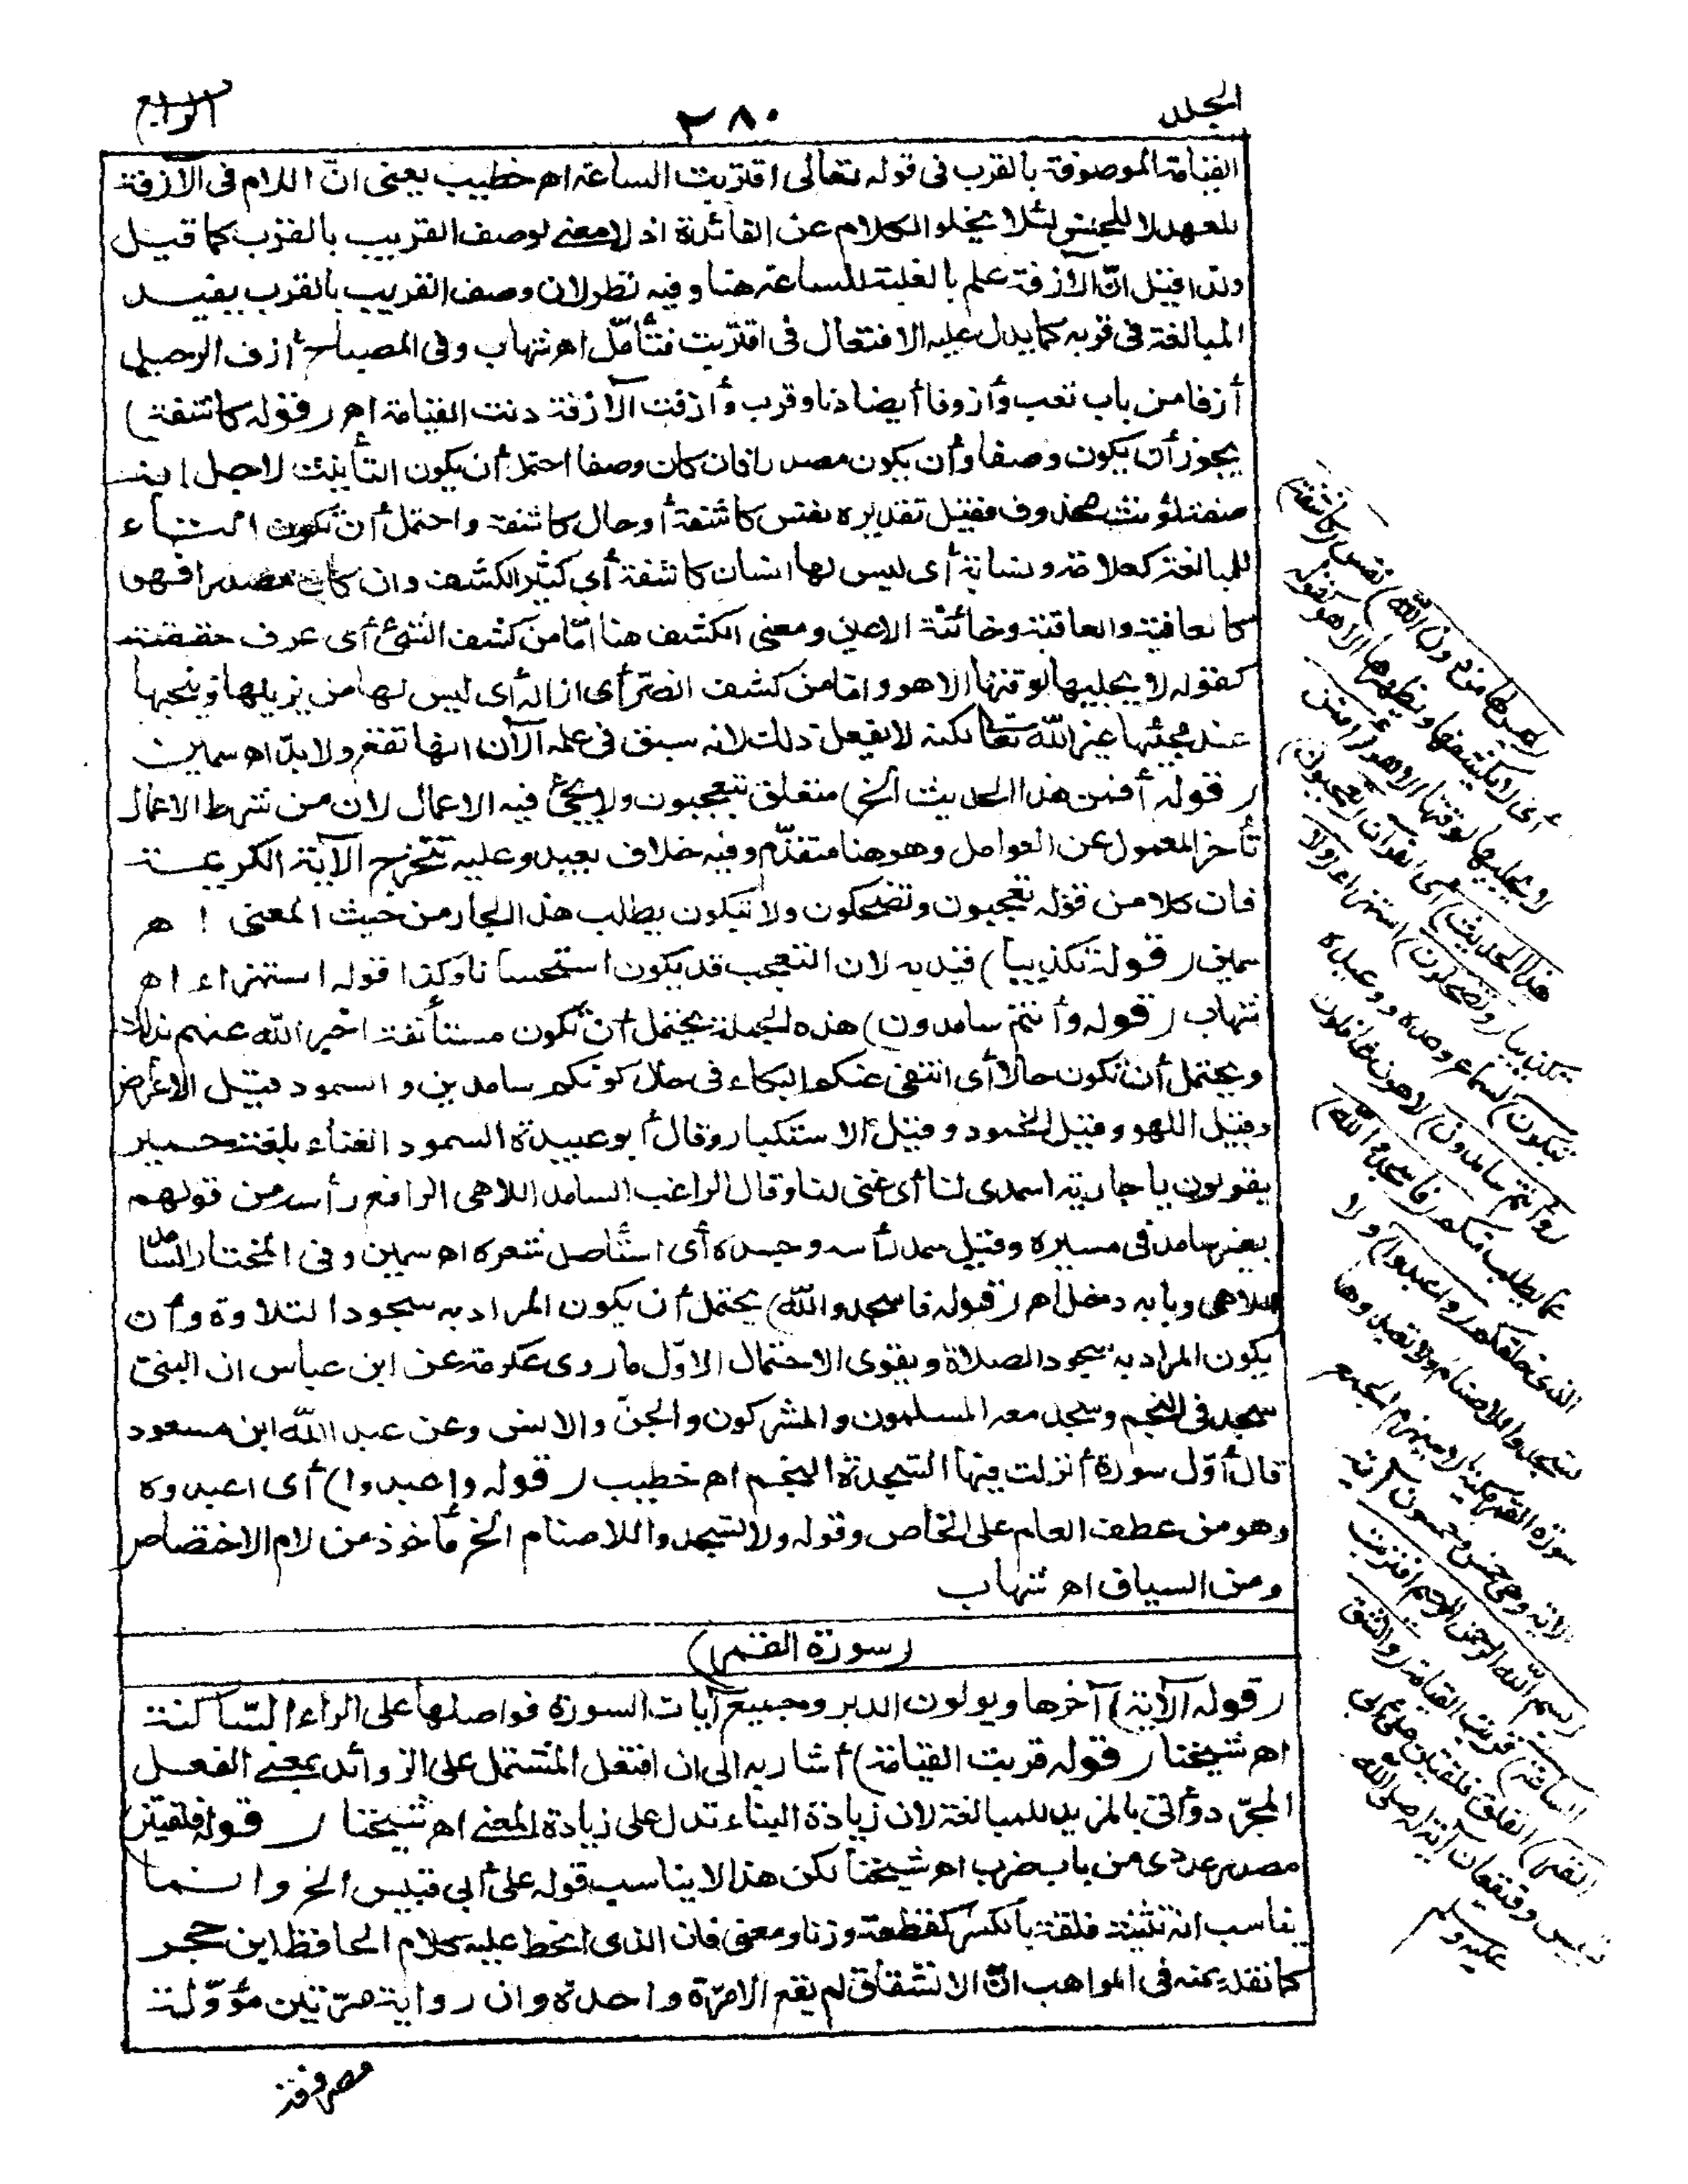 المجلد
٢٨٠
الرابع
القيامة الموصوفة بالقرب فى قوله تعالى اقتربت الساعة اهـ خطيب يعنى انّ اللام فى الآزفة
للعهد لا للجنس لئلا يخلو الكلام عن الفائدة اذ لا معنى لوصف القريب بالقرب كما قيل
ولذا قيل انّ الآزفة علم بالغلبة للساعة هنا وفيه نظر لان وصف القريب بالقرب يفيد
المبالغة فى قربه كما يدل عليه الافتعال فى اقتربت فتأمّل اهـ شهاب وفى المصباح أزف الرحيل
أزفا من باب تعب وأزوفا أيضا دنا وقرب وأزفت الآزفة دنت القيامة اهـ (قوله كاشفة)
يجوز أن يكون وصفا وأن يكون مصدرا فان كان وصفا احتمل أن يكون التأنيث لاجل انه
صفة لمؤنث محذوف فقيل تقديره نفس كاشفة أو حال كاشفة واحتمل أن تكون التاء
للمبالغة كعلامة ونسابة أى ليس لها انسان كاشفة أى كثير الكشف وان كان مصدرا فهى
كالعافية والعاقبة وخائنة الاعين ومعنى الكشف هنا امّا من كشف الشئ أى عرف حقيقته
كقوله لا يجليها لوقتها الا هو واما من كشف الضرّ أى ازاله أى ليس لها من يزيلها وينجيها
عند مجيئها غير الله تعالى لكنه لا يفعل ذلك لانه سبق فى علمه الآن انها تقع ولا بدّ اهـ سمين
(قوله أفمن هذا الحديث الخ) متعلق بتعجبون ولا يجئ فيه الاعمال لان من شرط الاعمال
تأخر المعمول عن العوامل وهو هنا متقدّم وفيه خلاف بعيد وعليه تتخرج الآية الكريمة
فان كلا من قوله تعجبون وتضحكون ولا تبكون يطلب هذا الجار من حيث المعنى اهـ
سمين (قوله تكذيبا) قيد به لان التعجب قد يكون استحسانا وكذا قوله استهزاء اهـ
شهاب (قوله وأنتم سامدون) هذه الجملة يحتمل أن تكون مستأنفة اخبر الله عنهم بذلك
ويحتمل أن تكون حالا أى انتفى عنكم البكاء فى حال كونكم سامدين والسمود قيل الاعراض
وقيل اللهو وقيل الخمود وقيل الاستكبار وقال أبو عبيدة السمود الغناء بلغة حمير
يقولون يا جارية اسمدى لنا أى غنى لنا وقال الراغب السامد اللاهى الرافع رأسه من قولهم
بعير سامد فى مسيره وقيل سمد رأسه وجسده أى استأصل شعره اهـ سمين وفى المختار السامد
اللاهى وبابه دخل اهـ (قوله فاسجدوا لله) يحتمل أن يكون المراد به سجود التلاوة وأن
يكون المراد به سجود الصلاة ويقوى الاحتمال الاوّل ما روى عكرمة عن ابن عباس ان النبىّ
سجد فى النجم وسجد معه المسلمون والمشركون والجنّ والانس وعن عبد الله ابن مسعود
قال أوّل سورة أنزلت فيها السجدة النجم اهـ خطيب (قوله واعبدوا) أى اعبدوه
وهو من عطف العام على الخاص وقوله ولا تسجدوا للاصنام الخ مأخوذ من لام الاختصاص
ومن السياق اهـ شهاب
(سورة القمر)
(قوله الآية) آخرها ويولون الدبر وجميع آيات السورة فواصلها على الراء السّاكنة
اهـ شيخنا (قوله قربت القيامة) أشار به الى ان افتعل المشتمل على الزوائد بمعنى الفعل
المجرّد وأتى بالمزيد للمبالغة لان زيادة البناء تدل على زيادة المعنى اهـ شيخنا (قوله فلقتين)
مصدر عددى من باب ضرب اهـ شيخنا لكن هذا لا يناسب قوله على أبى قبيس الخ وانما
يناسب انه تثنية فلقة بالكسر كقطعة وزنا ومعنى فان الذى انحط عليه كلام الحافظ ابن حجر
كما نقله عنه فى المواهب انّ الانشقاق لم يقع الا مرّة واحدة وان رواية مرّتين مؤوّلة
مصروفة
(ليس لها من دون الله) نفس (كاشفة)
أى لا يكشفها ويظهرها الا هو كقوله
لا يجليها لوقتها الا هو (أفمن
هذا الحديث) أى القرآن (تعجبون)
تكذيبا (وتضحكون) استهزاء (ولا
تبكون) لسماع وعده ووعيده
(وأنتم سامدون) لاهون غافلون
عما يطلب منكم (فاسجدوا لله)
الذى خلقكم (واعبدوا) ولا
تسجدوا للاصنام ولا تعبدوها
سورة القمر مكية الا سيهزم الجمع
الآية وهى خمس وخمسون آية
(بسم الله الرحمن الرحيم اقتربت
الساعة) قربت القيامة (وانشق
القمر) انفلق فلقتين على أبى
قبيس وقعيقعان آية له صلى الله
عليه وسلم